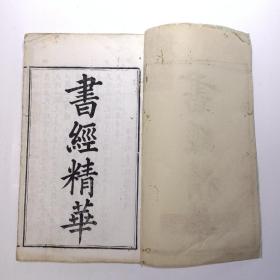 書經精華